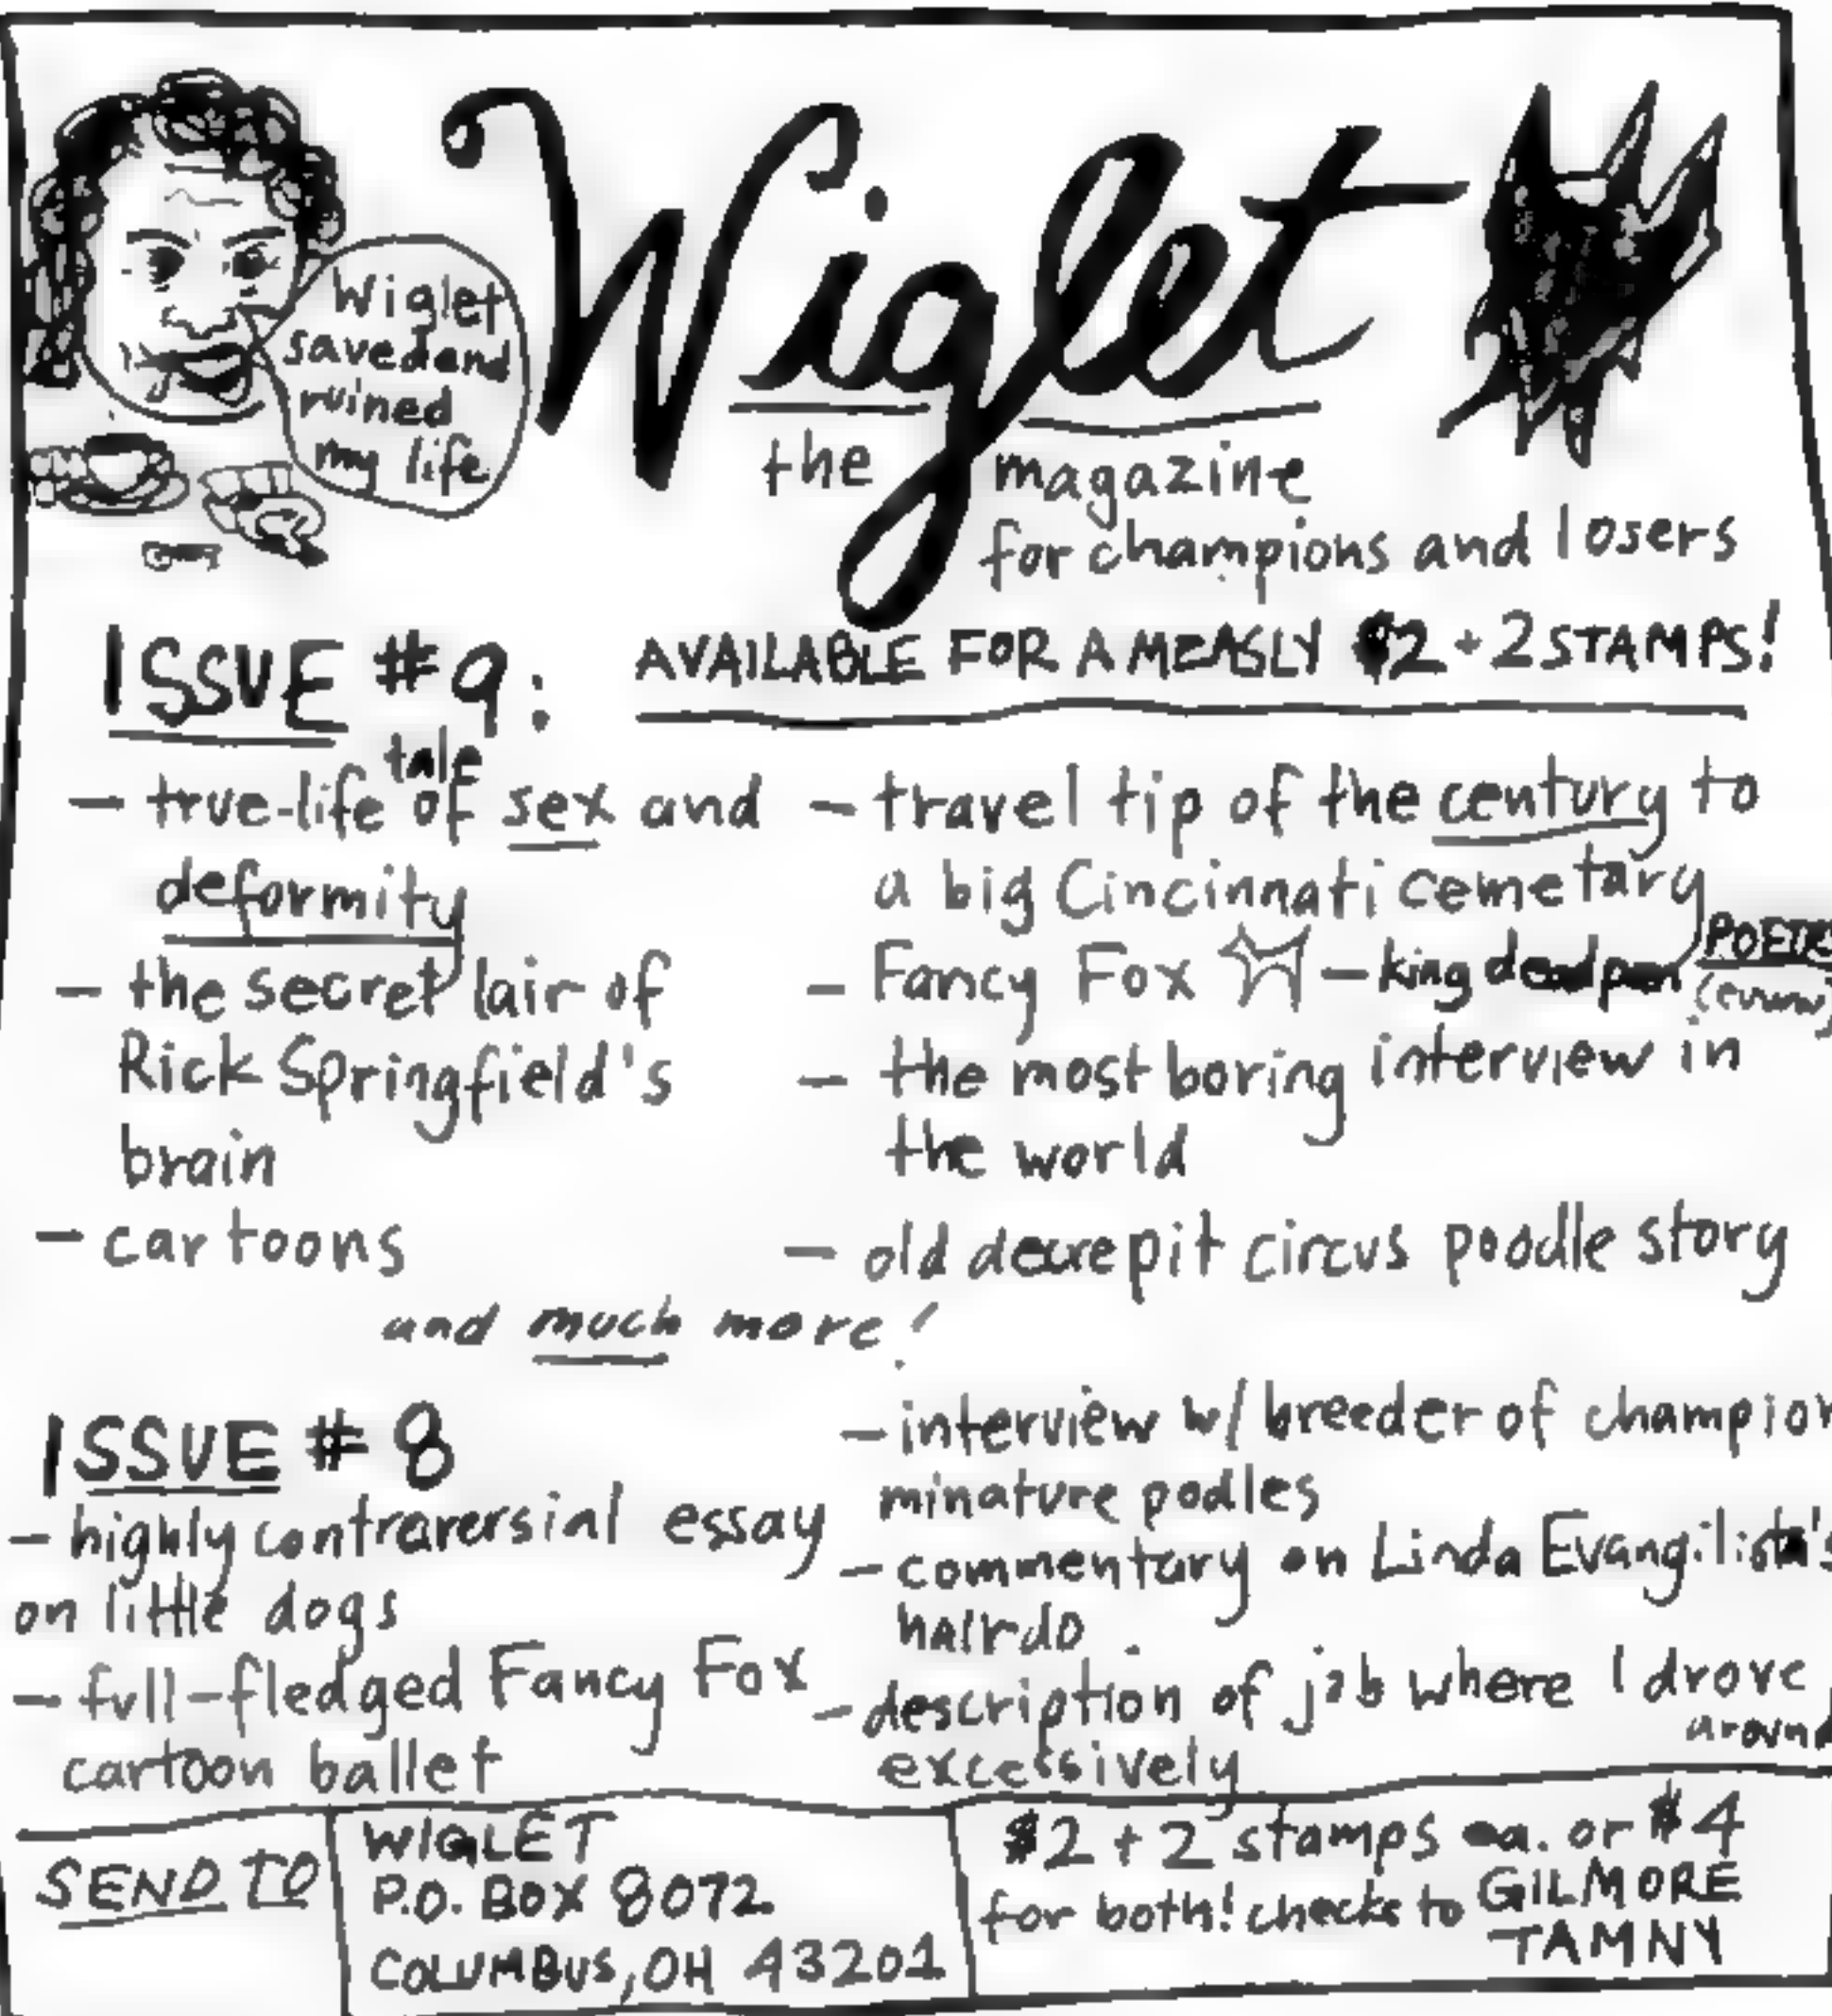 Wiglet
Wiglet
saved and
ruined
my life
the magazine
for champions and losers
ISSUE #9:
AVAILABLE FOR A MEASLY $2 + 2 STAMPS!
- true-life tale of sex and
deformity
- the secret lair of
Rick Springfield's
brain
- cartoons
- travel tip of the century to
a big Cincinnati cemetary
- Fancy Fox - king deadpan POETRY
- the most boring interview in
the world
- old decrepit circus poodle story
and much more!
ISSUE #8
- highly contraversial essay
on little dogs
- full-fledged Fancy Fox
cartoon ballet
- interview w/ breeder of champion
minature podles
- commentary on Linda Evangilista's
hairdo
- description of job where I drove
around
excessively
SEND TO
WIGLET
P.O. BOX 8072
COLUMBUS, OH 43201
$2 + 2 stamps ea. or $4
for both! checks to GILMORE
TAMNY